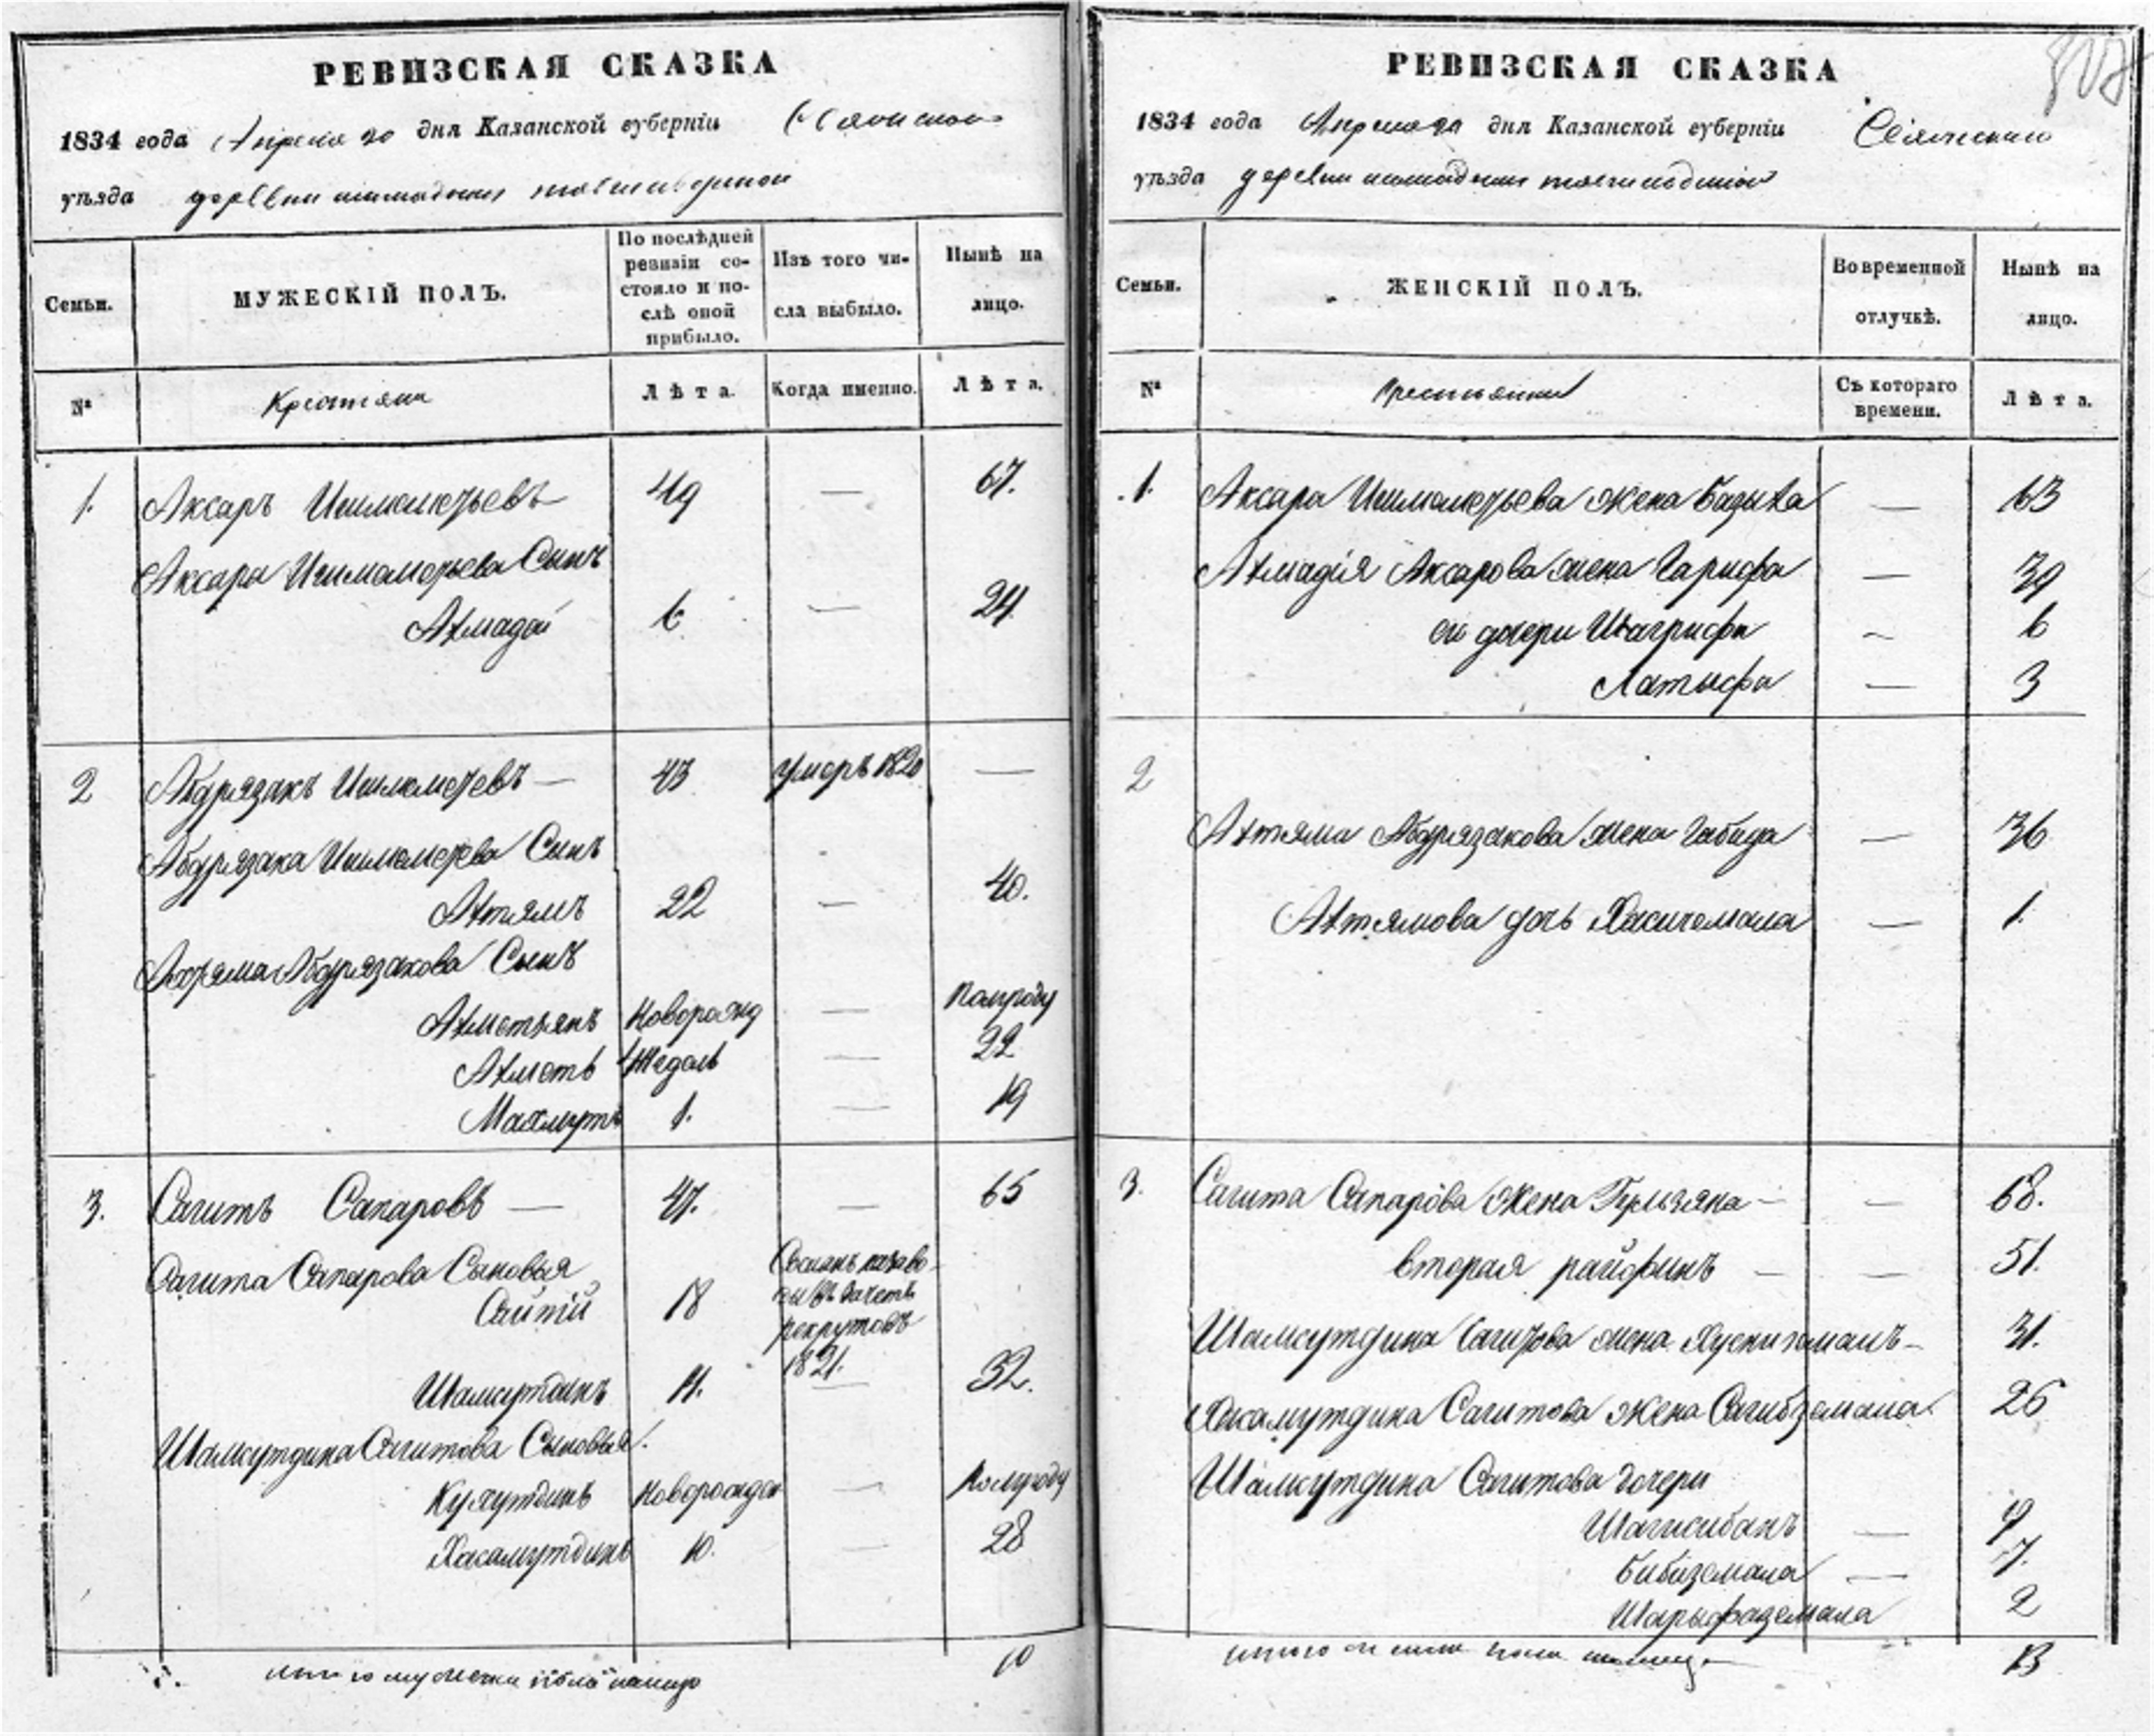 РЕВИЗСКАЯ СКАЗКА
1834 года Апреля 20 дня Казанской губерніи
уѣзда деревни
Семьи.
МУЖЕСКІЙ ПОЛЪ.
По послѣдней ревизіи со-
стояло и по-
слѣ оной
прибыло.
Изъ того чи-
сла выбыло.
Нынѣ на
лицо.
№
Крестьяне
Лѣта.
Когда именно.
Лѣта.
1. Аксаръ Ишмаметьевъ 49 — 67.
Аксара Ишмаметьева Сынъ
Ахмадей 6 — 24
2 Абдрязакъ Ишмаметевъ — 43 умеръ 1820 —
Абдрязака Ишмаметева Сынъ
Ахтямъ 22 — 40.
Ахтяма Абдрязакова Сынъ
Ахметьянъ Новорожд — Полугоду
Ахметь — 22
Махмутъ 1. — 19
3. Сагитъ Сапаровъ — 47. — 65
Сагита Сапарова Сыновья
Сайтій 18
рекрутовъ
1821.
Шамсутдинъ 14. — 32.
Шамсутдина Сагитова Сыновья.
Новорожден — Полугоду
Хасамутдинъ 10. — 28
Итого мужеска пола налицо 10
РЕВИЗСКАЯ СКАЗКА
1834 года Апреля 20 дня Казанской губерніи
уѣзда деревни
Семьи.
ЖЕНСКІЙ ПОЛЪ.
Во временной
отлучкѣ.
Нынѣ на
лицо.
№
Крестьянки
Съ котораго
времени.
Лѣта.
1. Аксара Ишмаметьева жена — 63
Ахмадія Аксарова жена Гарифа — 39
ея дочери Шагрифа — 6
Латыфа — 3
2
Ахтяма Абдрязакова жена Габида — 36
Ахтямова дочь — 1.
3. Сагита Сапарова жена — — 68.
вторая райфинъ — — 51.
Шамсутдина Сагитова жена — 31.
Хисамутдина Сагитова жена Сагибземала. 26
Шамсутдина Сагитова дочери
— 9
Бибиземала — 7.
Шарыфаземала 2
Итого женска пола налицо 13